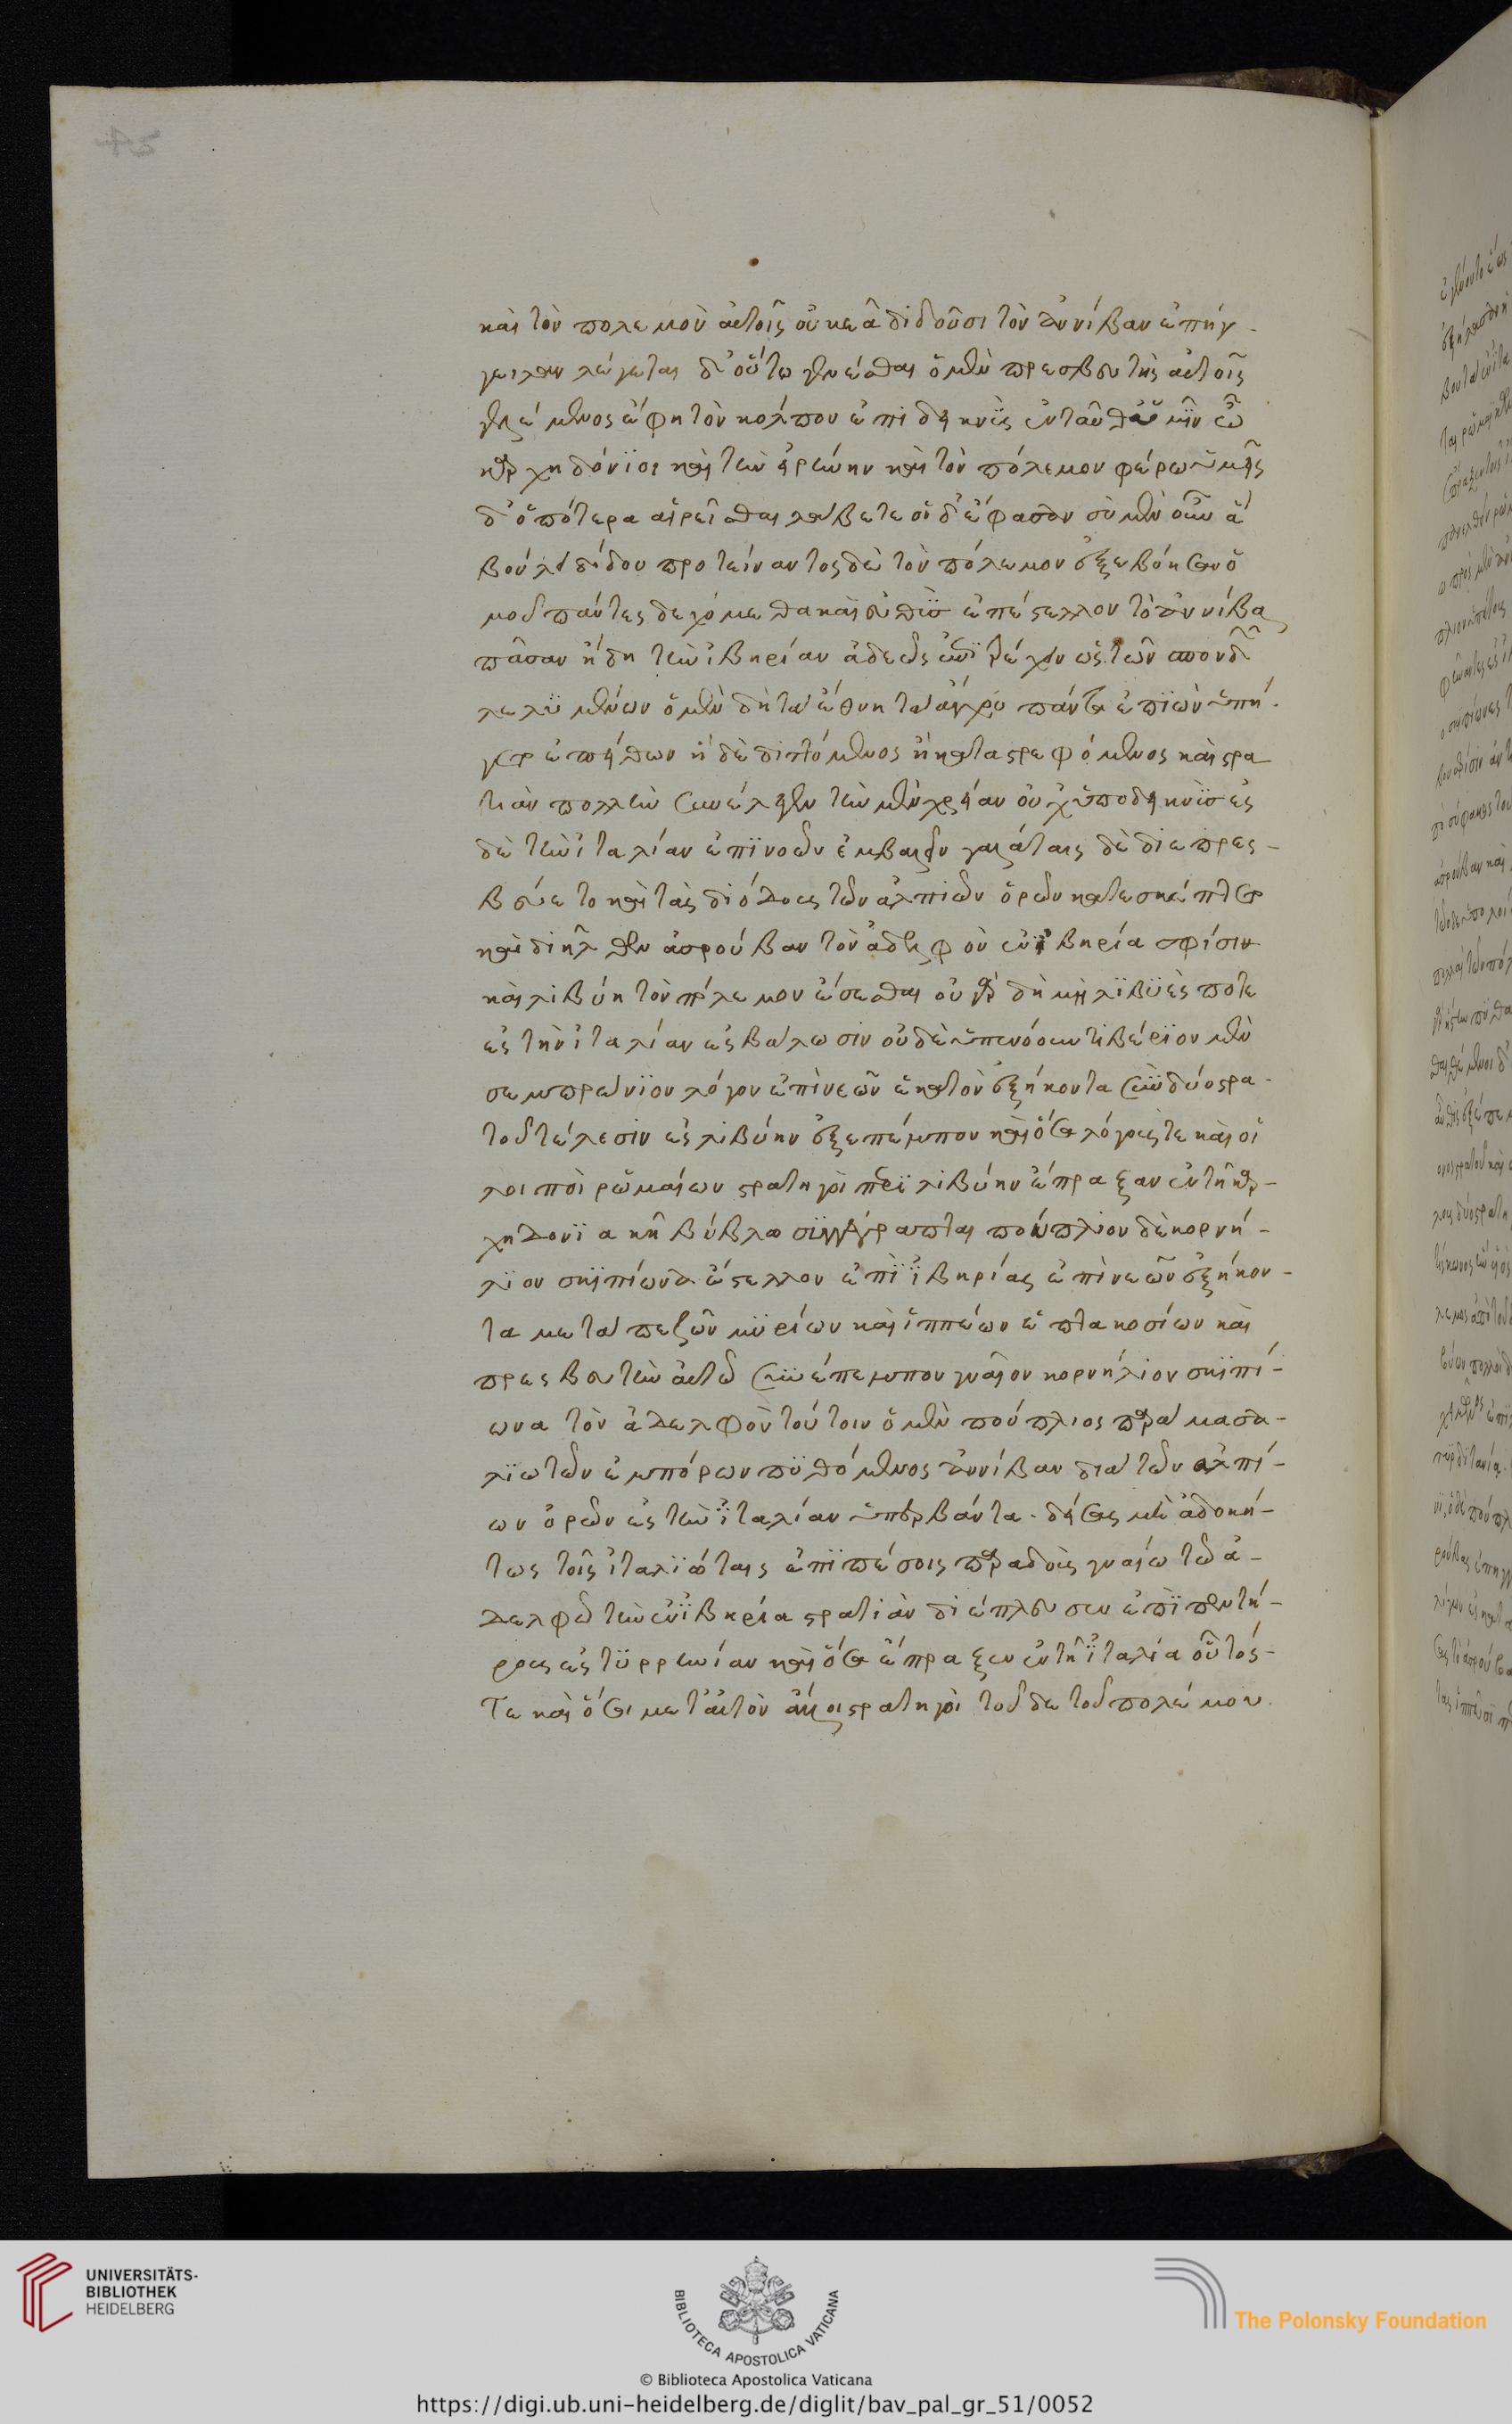 καὶ τὸν πολεμον αὐτοῖς οὐκ ἐκδιδοῦσι τὸν ἀννίβαν ἐπήγ-
γειλεν λέγεται δ' οὕτω γενέσθαι ὁ μὲν πρεσβευτὴς αὐτοῖς
γελώμενος ἔφη τὸν κόλπον ἐπιδεικνὺς ἐνταῦθα ὑμῖν ὦ
καρχηδόνϊοι καὶ τὴν εἰρήνην καὶ τὸν πόλεμον φέρω ὑμεῖς
δ' ὁπότερα αἱρεῖσθαι λάβετε οἱ δ' ἔφασαν σὺ μὲν οὖν ἃ
βούλει δίδου προτείναντος δὲ τὸν πόλεμον ἐξεβόησαν ὁ
μοῦ πάντες δεχόμεθα καὶ εὐθὺς ἐπέστελλον τῶ ἀννίβα
πᾶσαν ἤδη τὴν ἰβηρίαν ἀδεῶς ἐπιτρέχειν ὡς τῶν σπονδῶν
λελϋμένων ὁ μὲν δὴ τὰ ἔθνη τὰ ἀγχοῦ πάντα ἐπϊὼν ὑπή-
γετο ἐπείθων ἢ δεδιττόμενος ἢ καταστρεφόμενος καὶ στρα
τιὰν πολλὴν συνέλεγεν τὴν μὲν χρείαν οὐχ ὑποδεικνὺς ἐς
δὲ τὴν ἰταλίαν ἐπϊνοῶν ἐμβαλεῖν γαλάταις δὲ διεπρεσ-
βεύετο καὶ τὰς διόδους τῶν ἀλπιῶν ὀρῶν κατεσκέπτετο
καὶ διῆλθεν ἀσρούβαν τὸν ἀδελφὸν ἐν ἰβηρία σφίσιν
καὶ λιβύη τὸν πόλεμον ἔσεσθαι οὐ γὰρ δὴ μὴ λϊβϋές ποτε
ἐς τὴν ἰταλίαν ἐςβάλωσιν οὐδὲ ὑπενόουν τιβέρϊον μὲν
σεμπρώνϊον λόγον ἐπὶ νεῶν ἑκατὸν ἑξήκοντα σὺν δύο στρα-
τοῦ τέλεσιν ἐς λιβύην ἐξεπέμπον καὶ ὅσα λόγοις τε καὶ οἱ
λοιποὶ ρωμαίων στρατηγοὶ περὶ λιβύην ἔπραξαν ἐν τῆ καρ-
χηδονϊακῆ βύβλω συγγέγραπται πούπλϊον δὲ κορνή-
λϊον σκϊπίωνα ἔστελλον ἐπὶ ἰβηρίας ἐπὶ νεῶν ἑξήκον-
τα μετὰ πεζῶν μϋρίων καὶ ἱππέων ἑπτακοσίων καὶ
πρεςβευτὴν αὐτῶ συνέπεμπον γνάϊον κορνήλιον σκϊπί-
ωνα τὸν ἀδελφὸν τούτοιν ὁ μὲν πούπλιος παρὰ μασα-
λϊωτῶν ἐμπόρων πϋθόμενος ἀννίβαν διὰ τῶν ἀλπί-
ων ὀρῶν ἐς τὴν ἰταλίαν ὑπερβάντα. δείσας μὴ ἀδοκή-
τως τοῖς ἰταλϊώταις ἐπϊπέσοις παραδοὺς γναίω τῶ ἀ-
δελφῶ τὴν ἐν ἰβηρία στρατιὰν διέπλευσεν ἐπὶ πεντή-
ρους ἐς τϋρρηνίαν καὶ ὅσα ἔπραξεν ἐν τῆ ἰταλία οὗτός-
τε καὶ ὅσοι μετ' αὐτὸν ἄλλοι στρατηγοὶ τοῦδε τοῦ πολέμου
UNIVERSITÄTS-
BIBLIOTHEK
HEIDELBERG
BIBLIOTECA APOSTOLICA VATICANA
The Polonsky Foundation
© Biblioteca Apostolica Vaticana
https://digi.ub.uni-heidelberg.de/diglit/bav_pal_gr_51/0052